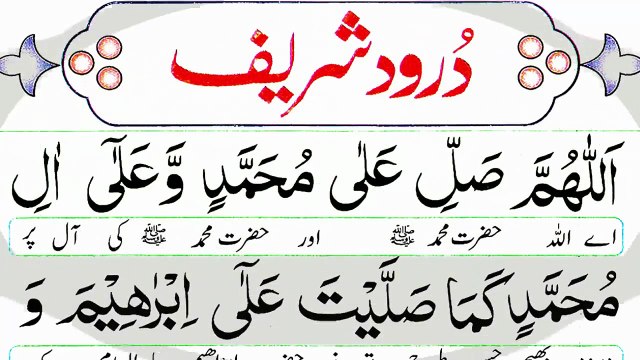 دُرود شریف
اَللّٰهُمَّ صَلِّ عَلٰى مُحَمَّدٍ وَّعَلٰٓى اٰلِ
اے اللہ حضرت محمد ﷺ اور حضرت محمد ﷺ کی آل پر
مُحَمَّدٍ كَمَا صَلَّيْتَ عَلٰٓى اِبْرٰهِيْمَ وَ